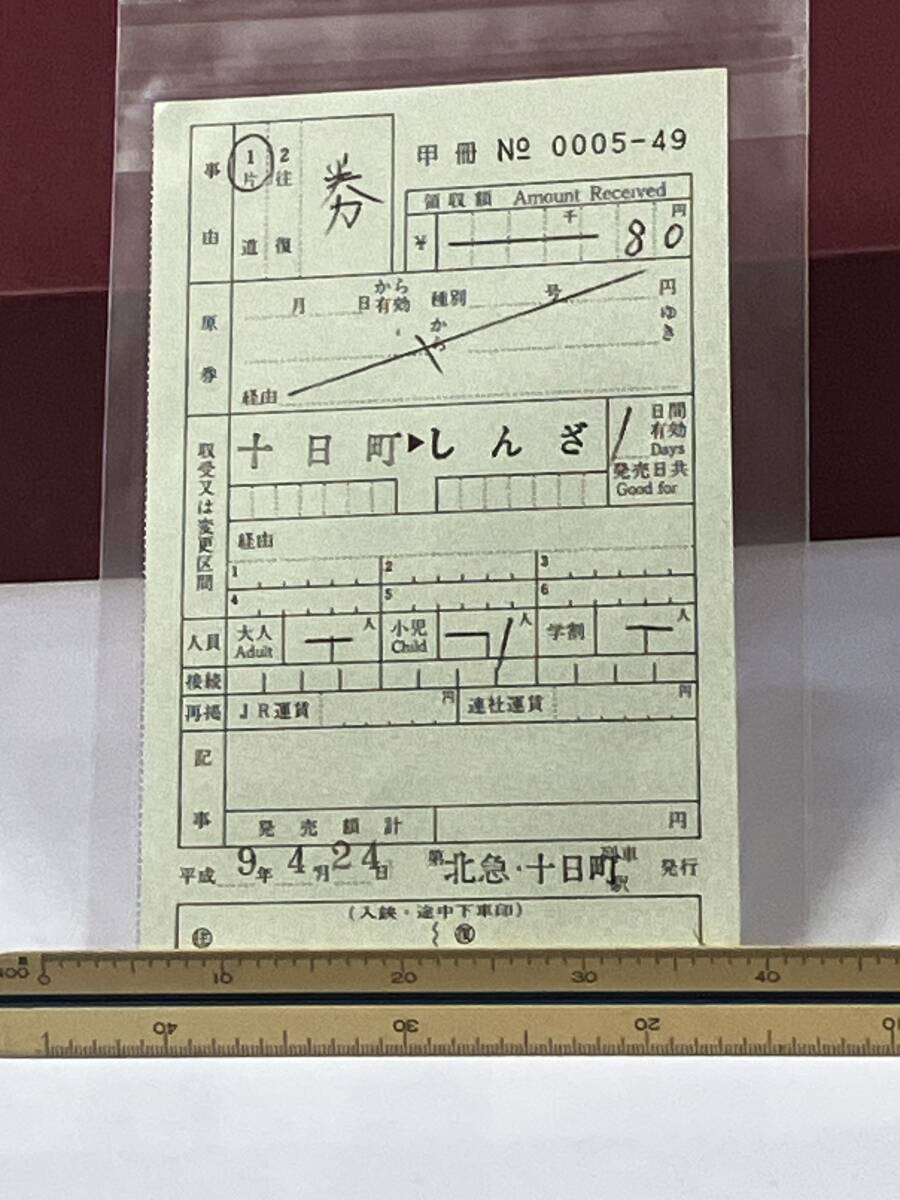 甲冊 № 0005-49
事由
1片道
2往復
券
領収額 Amount Received
千 円
¥ 80
原券
月 日から有効 種別 号 円
から ゆき
経由
取受又は変更区間
十日町▶しんざ
1日間有効
Days
発売日共
Good for
経由
1 2 3
4 5 6
人員 大人 Adult 人 小児 Child 1人 学割 人
接続
再掲 JR運賃 円 連社運賃 円
記事
発売額計 円
平成 9年 4月 24日 第 北急・十日町 列車 駅 発行
(入鋏・途中下車印)
復
100 0 10 20 30 40
40 30 20 10